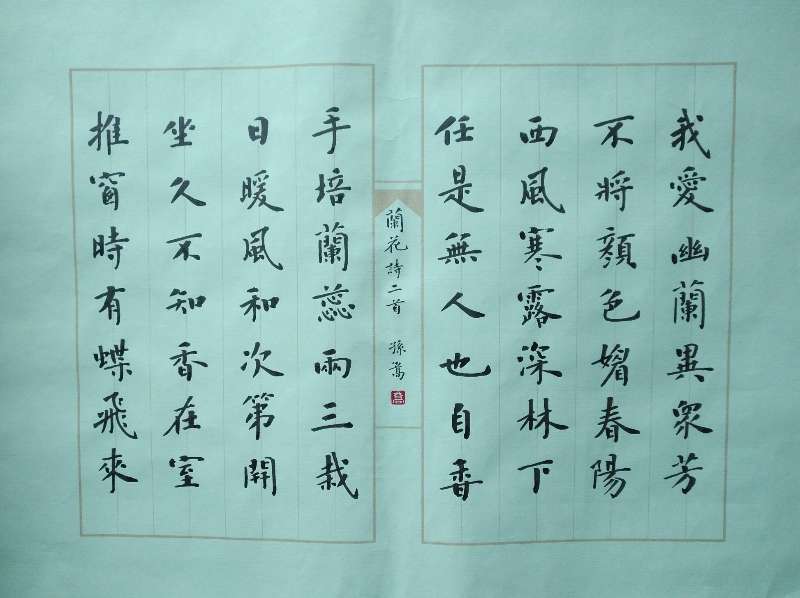 我愛幽蘭異眾芳
不將顏色媚春陽
西風寒露深林下
任是無人也自香
蘭花詩二首
孫篤
手培蘭蕊兩三栽
日暖風和次第開
坐久不知香在室
推窗時有蝶飛來